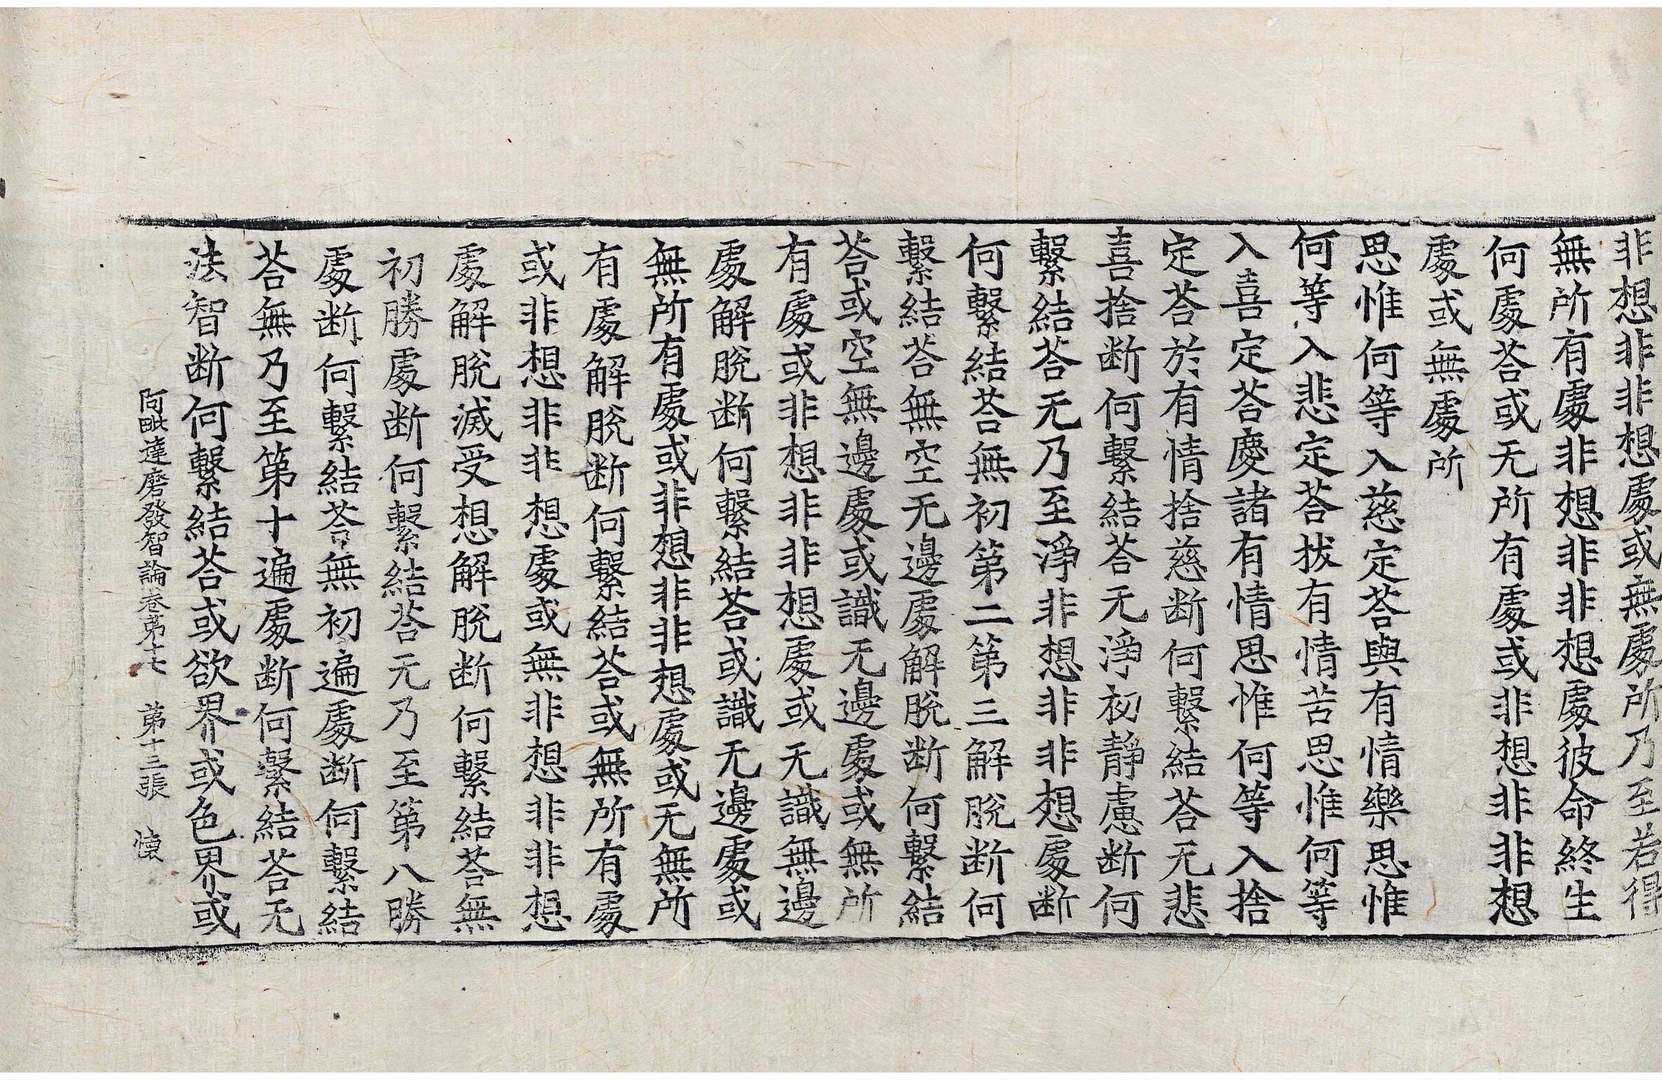 非想非非想處或無處所乃至若得
無所有處非想非非想處彼命終生
何處荅或无所有處或非想非非想
處或無處所
思惟何等入慈定荅與有情樂思惟
何等入悲定荅拔有情苦思惟何等
入喜定荅慶諸有情思惟何等入捨
定荅於有情捨慈斷何繫結荅无悲
喜捨斷何繫結荅无淨初靜慮斷何
繫結荅无乃至淨非想非非想處斷
何繫結荅無初第二第三解脫斷何
繫結荅無空无邊處解脫斷何繫結
荅或空無邊處或識无邊處或無所
有處或非想非非想處或无識無邊
處解脫斷何繫結荅或識无邊處或
無所有處或非想非非想處或无無所
有處解脫斷何繫結荅或無所有處
或非想非非想處或無非想非非想
處解脫滅受想解脫斷何繫結荅無
初勝處斷何繫結荅无乃至第八勝
處斷何繫結荅無初遍處斷何繫結
荅無乃至第十遍處斷何繫結荅无
法智斷何繫結荅或欲界或色界或
阿毗達磨發智論卷第十七 第十三張 懐